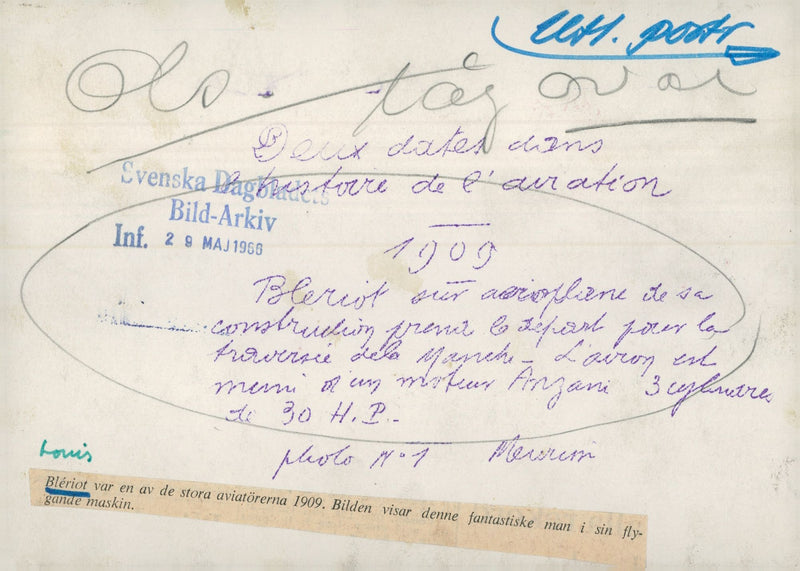 Utl. portr
Deux dates dans
l'histoire de l'aviation
Svenska Dagbladets
Bild-Arkiv
Inf. 29 MAJ 1966
1909
Bleriot sur aeroplane de sa
construction prend le départ pour la
traversée de la Manche - L'avion est
muni d'un moteur Anzani 3 cylindres
de 30 H.P.-
photo N°1 Meurisse
Louis
Blériot var en av de stora aviatörerna 1909. Bilden visar denne fantastiske man i sin fly-
gande maskin.